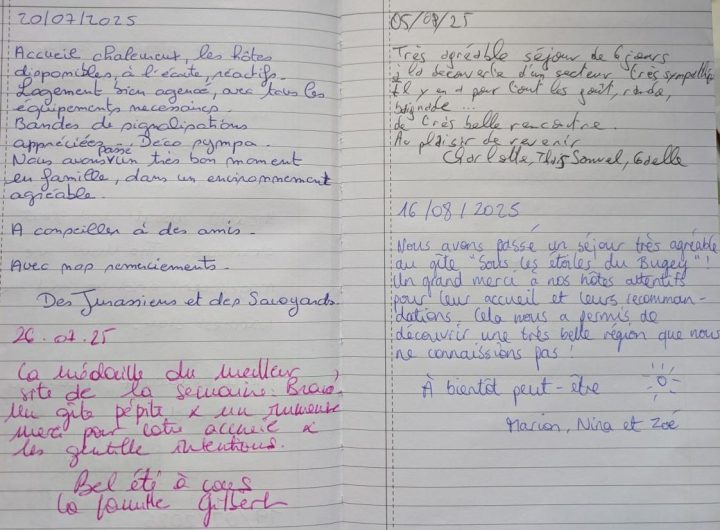 20/07/2025
Accueil chaleureux, les hôtes
disponibles, à l'écoute, réactifs.
Logement bien agencé, avec tous les
équipements necessaires.
Bandes de signalisations
appréciées. Déco sympa.
Nous avons passé un très bon moment
en famille, dans un environnement
agréable.
A conseiller à des amis.
Avec nos remerciements.
Des Jurassiens et des Savoyards.
26.07.25
La médaille du meilleur
site de la semaine. Bravo.
Un gîte pépite & un immense
merci pour votre accueil &
les gentille intentions.
Bel été à vous
La famille Gilbert
05/08/25
Très agréable séjour de 6 jours
à la découverte d'un secteur très sympathique
Il y en a pour tout les goût, rando,
baignade...
de très belle rencontre.
Au plaisir de revenir
Charlotte, Samuel,
16/08/2025
Nous avons passé un séjour très agréable
au gîte "Sous les étoiles du Bugey"!
Un grand merci à nos hôtes attentifs
pour leur accueil et leurs recomman-
dations. Cela nous a permis de
découvrir une très belle région que nous
ne connaissions pas!
À bientôt peut-être
Marion, Nina et Zoé